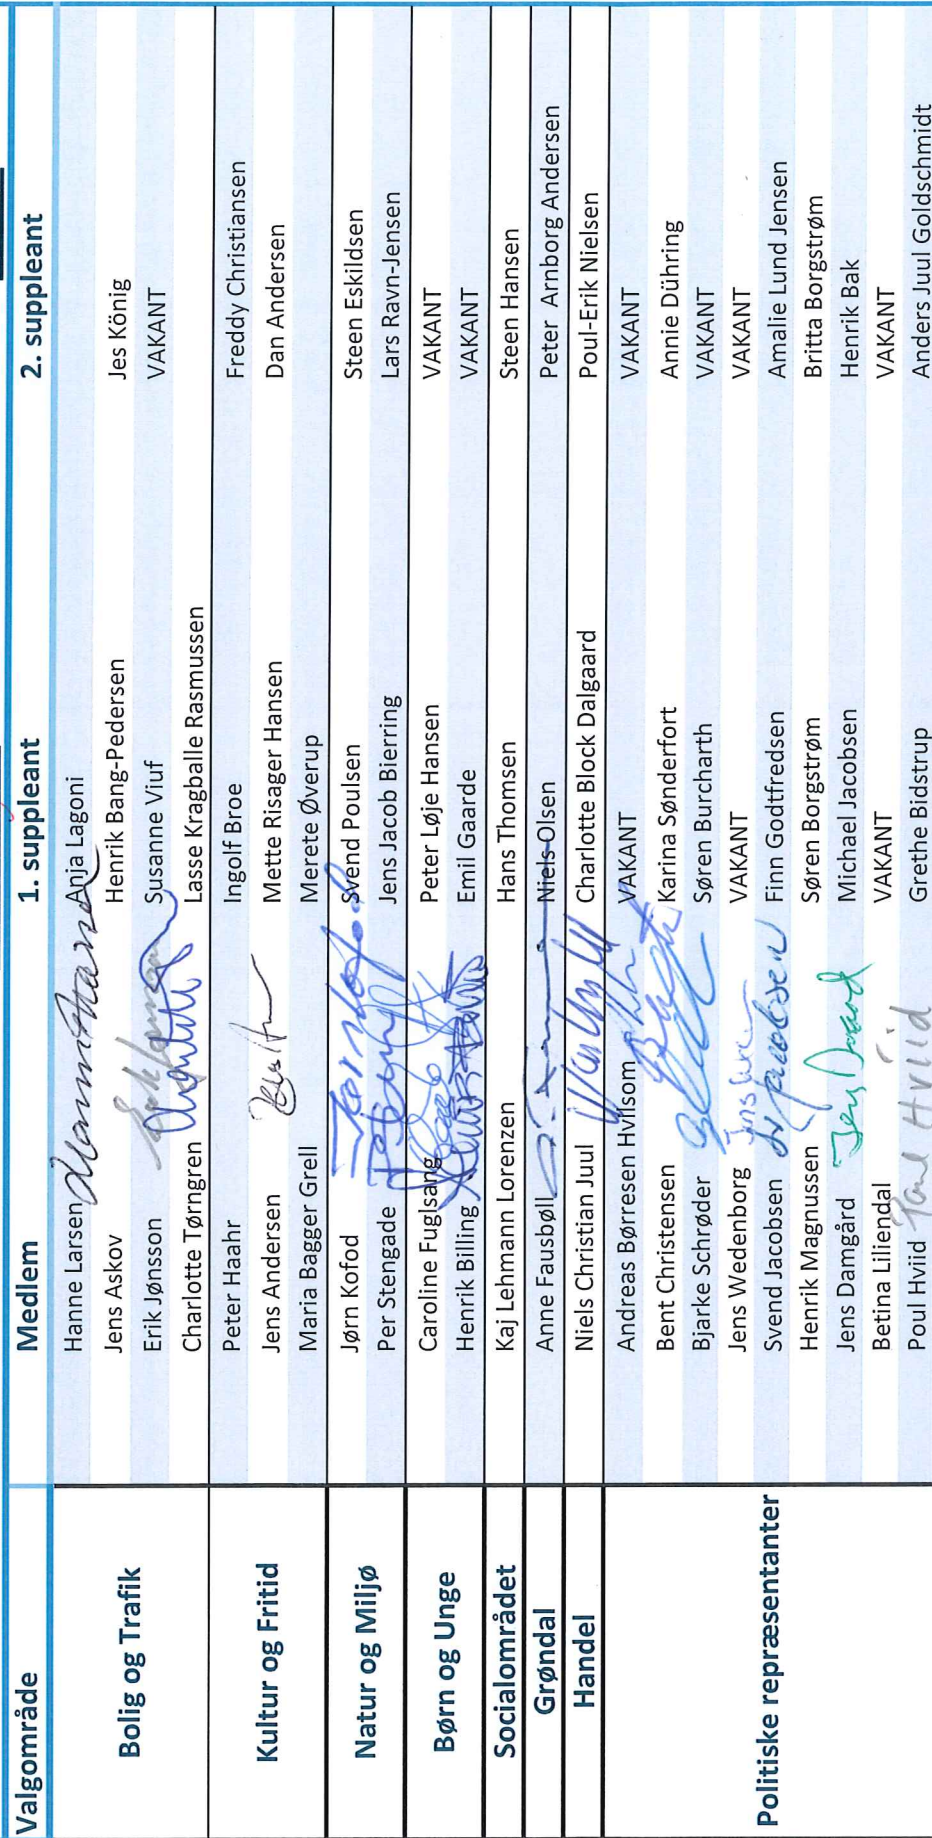 Valgområde Medlem 1. suppleant 2. suppleant
Bolig og Trafik
Hanne Larsen Anja Lagoni
Jens Askov Henrik Bang-Pedersen Jes König
Erik Jønsson Susanne Viuf VAKANT
Charlotte Tørngren Lasse Kragballe Rasmussen
Kultur og Fritid
Peter Haahr Ingolf Broe Freddy Christiansen
Jens Andersen Mette Risager Hansen Dan Andersen
Maria Bagger Grell Merete Øverup
Natur og Miljø
Jørn Kofod Svend Poulsen Steen Eskildsen
Per Stengade Jens Jacob Bierring Lars Ravn-Jensen
Børn og Unge
Caroline Fuglsang Peter Løje Hansen VAKANT
Henrik Billing Emil Gaarde VAKANT
Socialområdet
Kaj Lehmann Lorenzen Hans Thomsen Steen Hansen
Grøndal
Anne Fausbøll Niels Olsen Peter Arnborg Andersen
Handel
Niels Christian Juul Charlotte Block Dalgaard Poul-Erik Nielsen
Politiske repræsentanter
Andreas Børresen Hvilsom VAKANT VAKANT
Bent Christensen Karina Sønderfort Annie Dühring
Bjarke Schrøder Søren Burcharth VAKANT
Jens Wedenborg VAKANT VAKANT
Svend Jacobsen Finn Godtfredsen Amalie Lund Jensen
Henrik Magnussen Søren Borgstrøm Britta Borgstrøm
Jens Damgård Michael Jacobsen Henrik Bak
Betina Liliendal VAKANT VAKANT
Poul Hviid Poul Hviid Grethe Bidstrup Anders Juul Goldschmidt